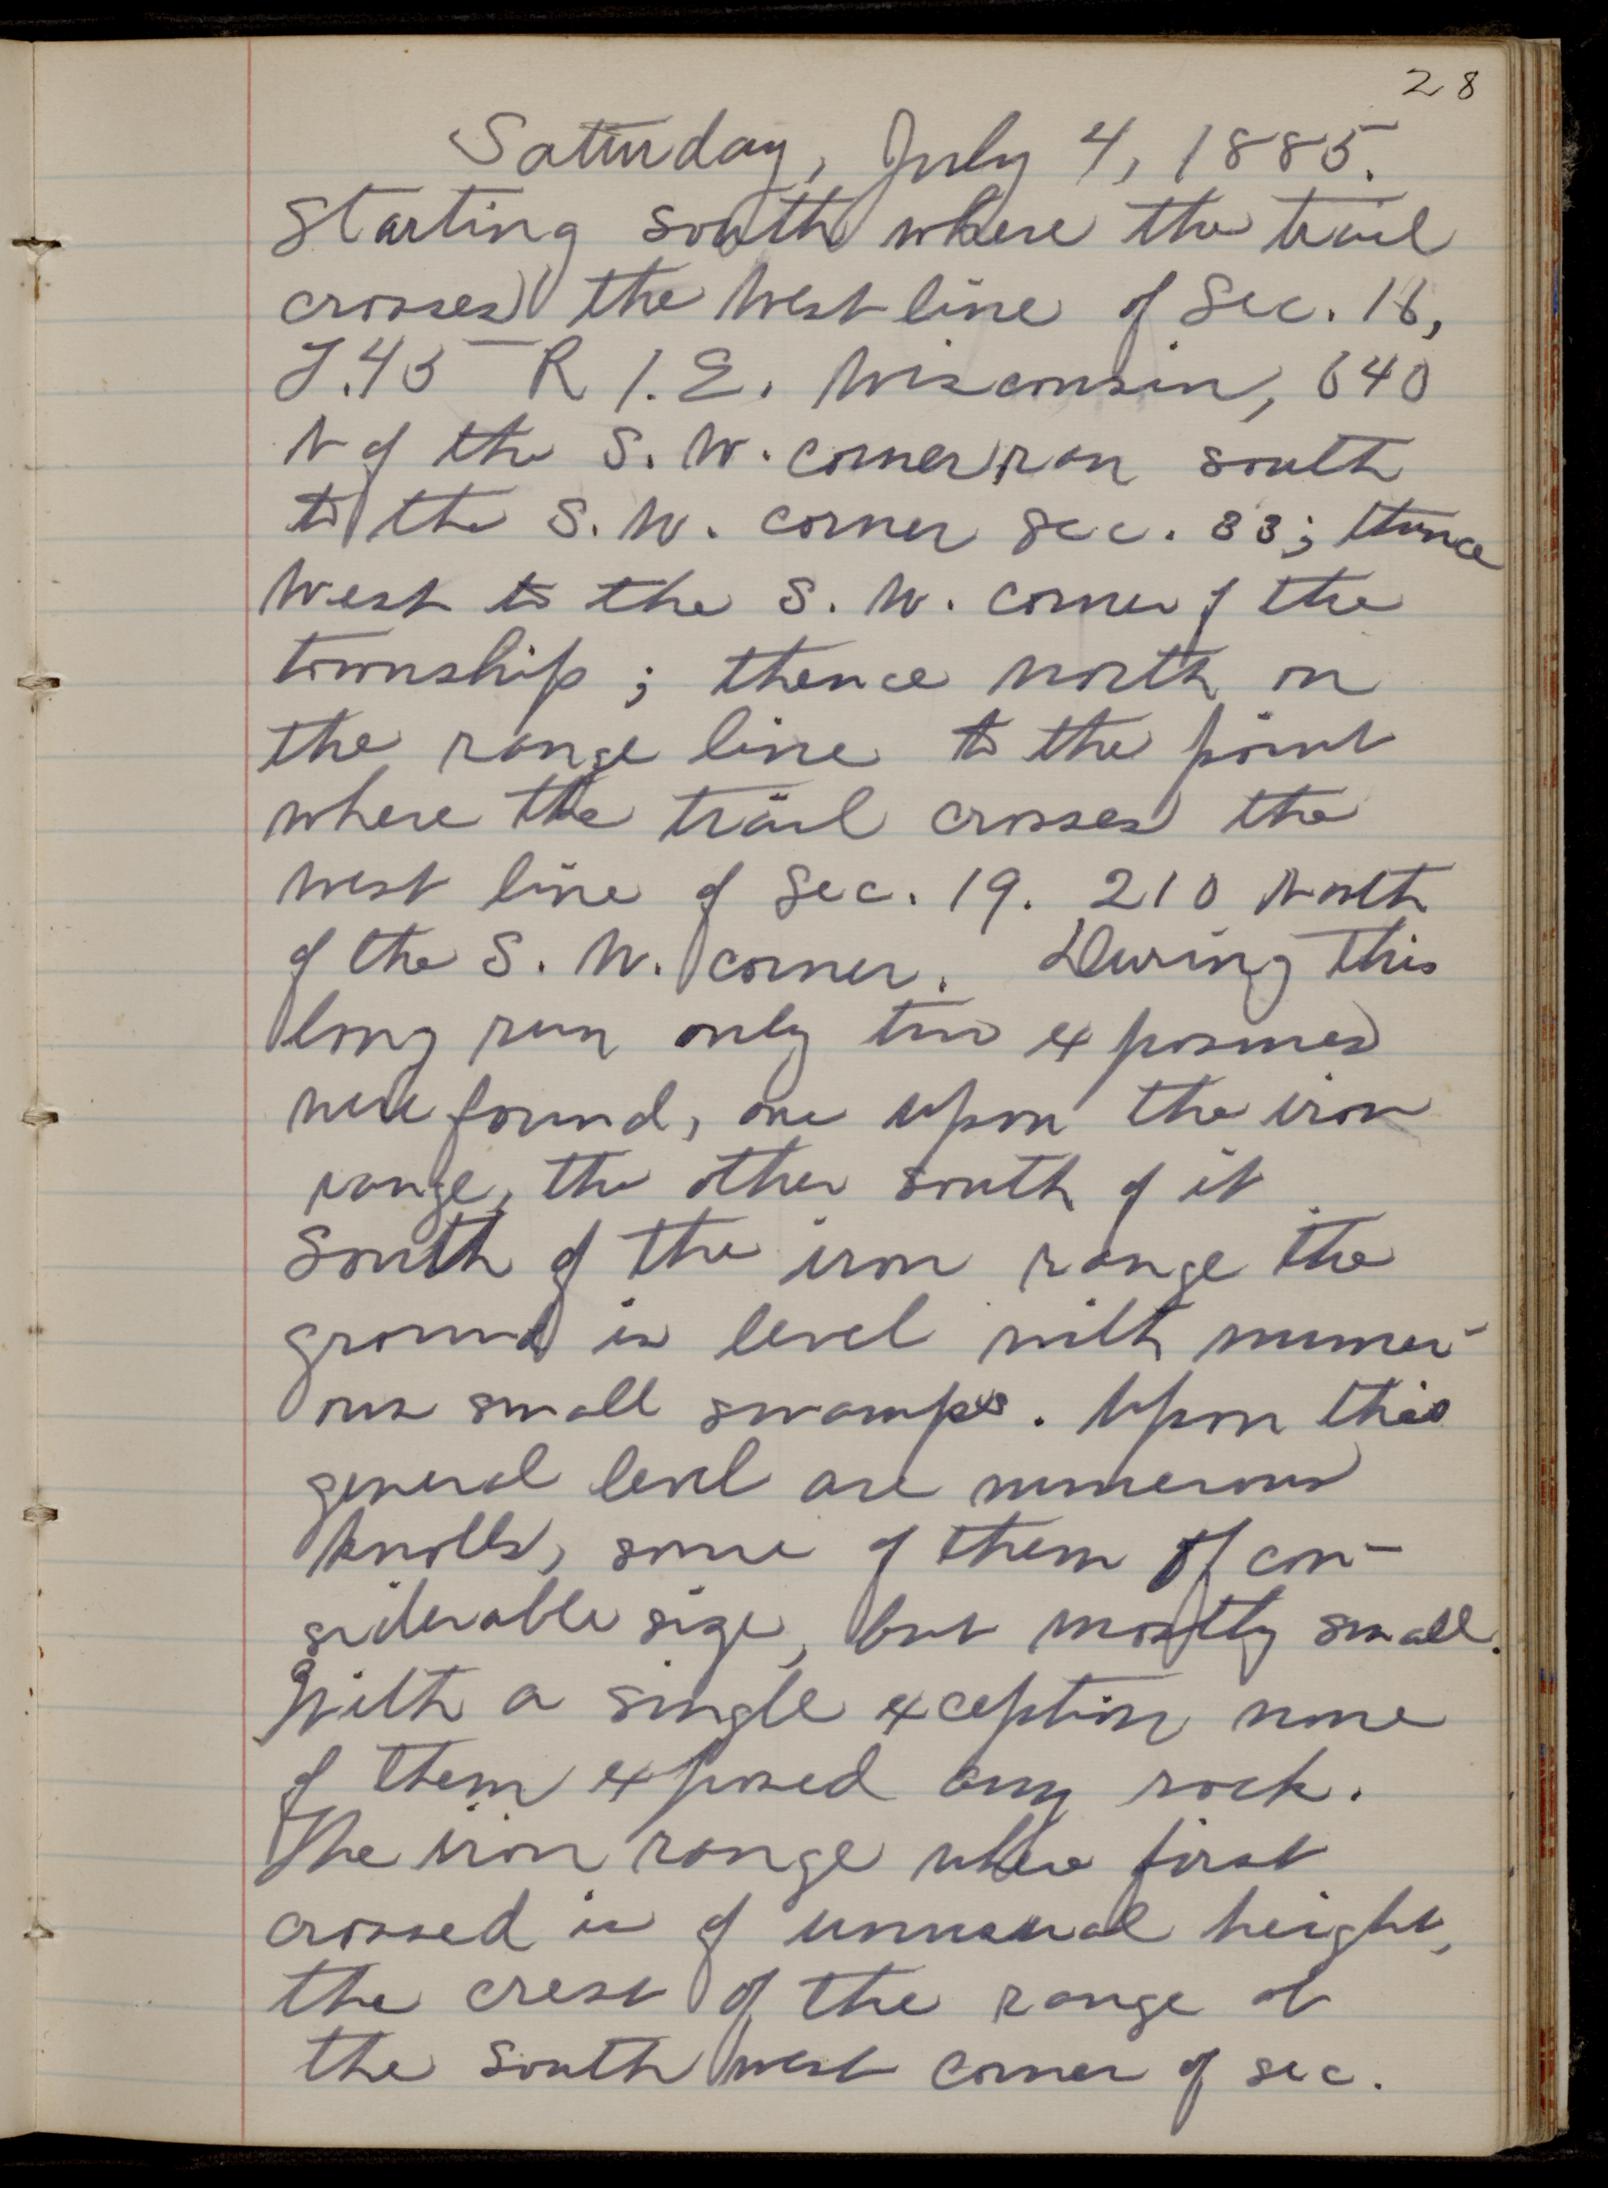 28
Saturday, July 4, 1885.
Starting south where the trail
crosses the West line of Sec. 16,
T.45 R 1.E. Wisconsin, 640
N of the S. W. corner, ran south
to the S. W. corner Sec. 33; thence
West to the S. W. corner of the
township; thence north on
the range line to the point
where the trail crosses the
west line of Sec. 19. 210 North
of the S. W. corner. During this
long run only two exposures
were found, one upon the iron
range, the other south of it.
South of the iron range the
ground is level with numer-
ous small swamps. Upon this
general level are numerous
knolls, some of them of con-
siderable size, but mostly small.
With a single exception none
of them exposed any rock.
The iron range where first
crossed is of unusual height,
the crest of the range at
the south west corner of sec.